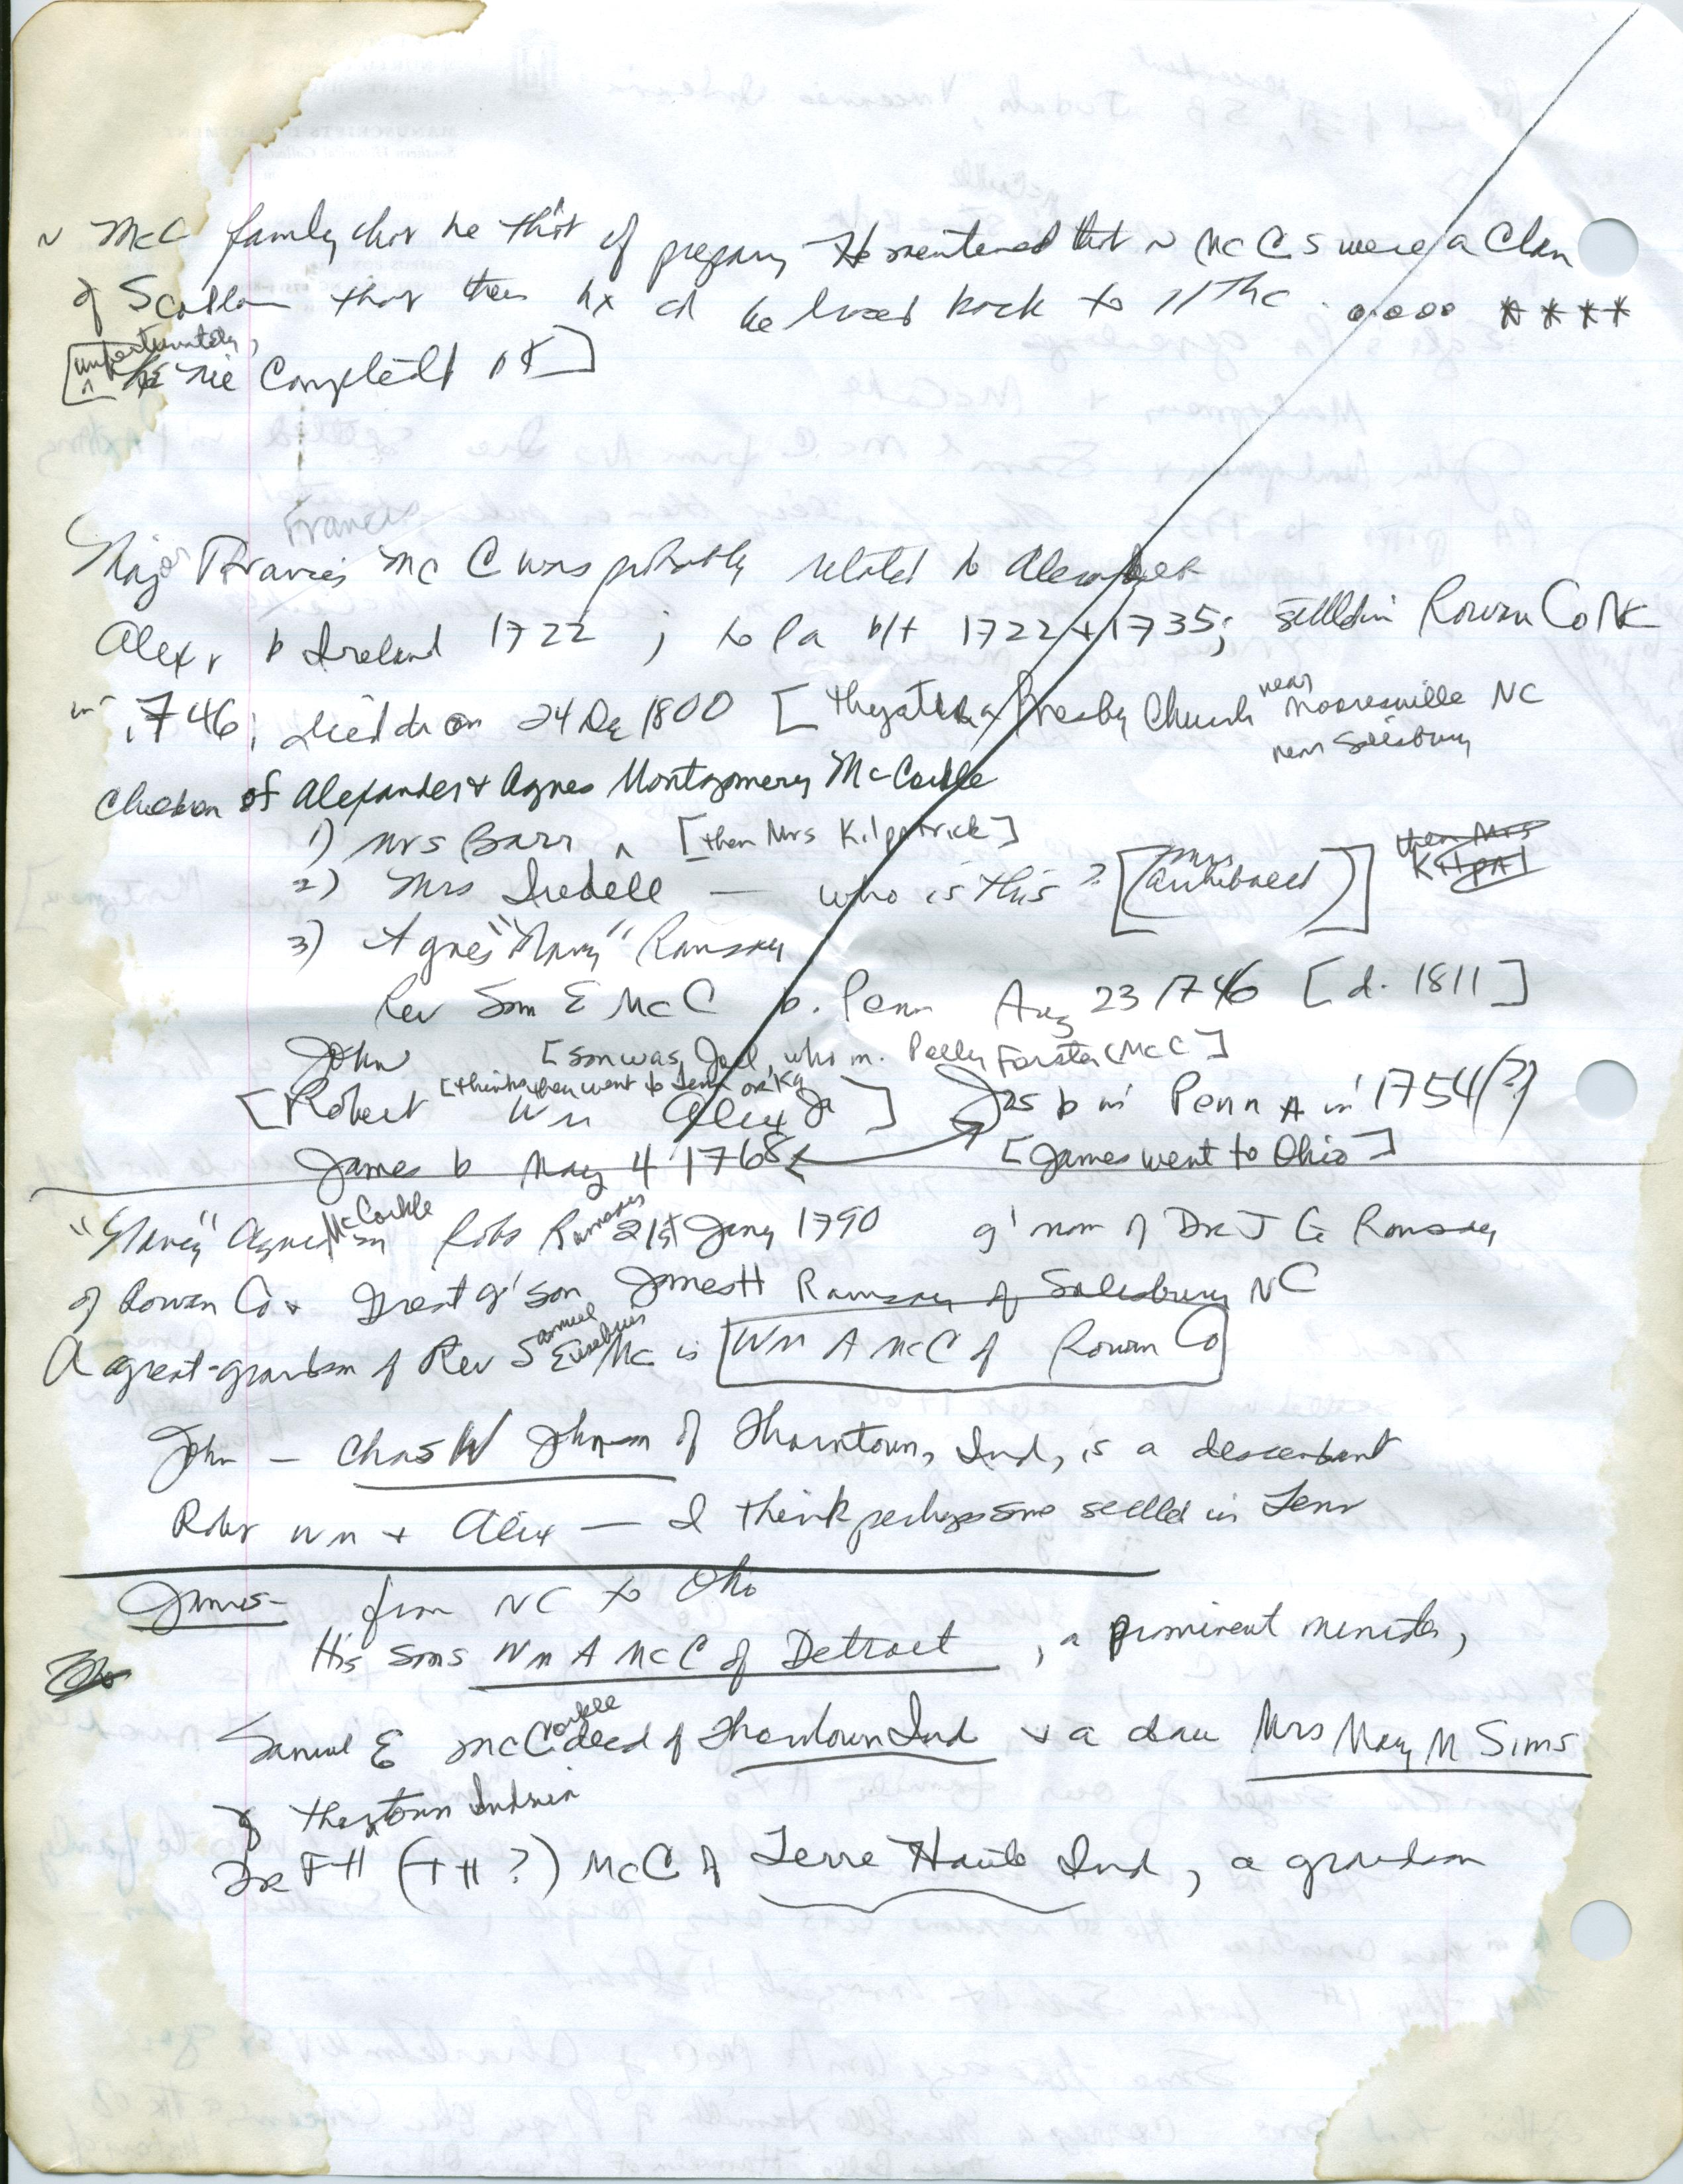 ~ McC family that he tht of preparing He mentioned that ~ McC s were a Clan
of Scotlan that their hx cd be traced back to 11th c . oooo ****
[unfortunately, he nie completed it]
Francis
Major Francis McC was probably related to Alexander
Alexr b Ireland 1722 ; to Pa b/t 1722 + 1735; settld in Rowan Co NC
in 1746; died on 24 De 1800 [Thyatira Presby Church near Mooresville NC
near Salisbury
Children of Alexander + Agnes Montgomery McCorkle
1) Mrs Barr ^ [then Mrs Kilpatrick]
2) Mrs Iredell — who is this? [Mrs (Archibald)] then Mrs Kilpat
3) Agnes "Nancy" Ramsay
Rev Sam E McC b. Penn Aug 23 1746 [d. 1811]
John [son was Joel, who m. Polly Forster (McC]
[thinks they went to Tenn or Ky
[Robert Wm Alex Jr] Jas b in Penn in 1754(?)
James b May 4 1768 [James went to Ohio]
"Nancy" Agnes McCorkle m Robt Ramsay 21st Jany 1790 g'mom of Dr J G Ramsay
of Rowan Co + Great g'son James H Ramsay of Salisbury NC
A great-grandson of Rev Samuel Eusebius Mc is Wm A McC of Rowan Co
John — Chas W Johnson of Thorntown, Ind, is a descendant
Robt Wm + Alex — I think perhaps some settld in Tenn
James - from NC to Ohio
His sons Wm A McC of Detroit, a prominent minister,
Samuel E McCorkle decd of Thorntown Ind + a dau Mrs Mary M Sims
of Thorntown Indiana
Dr F H (T H ?) McC of Terre Haute Ind, a grandson